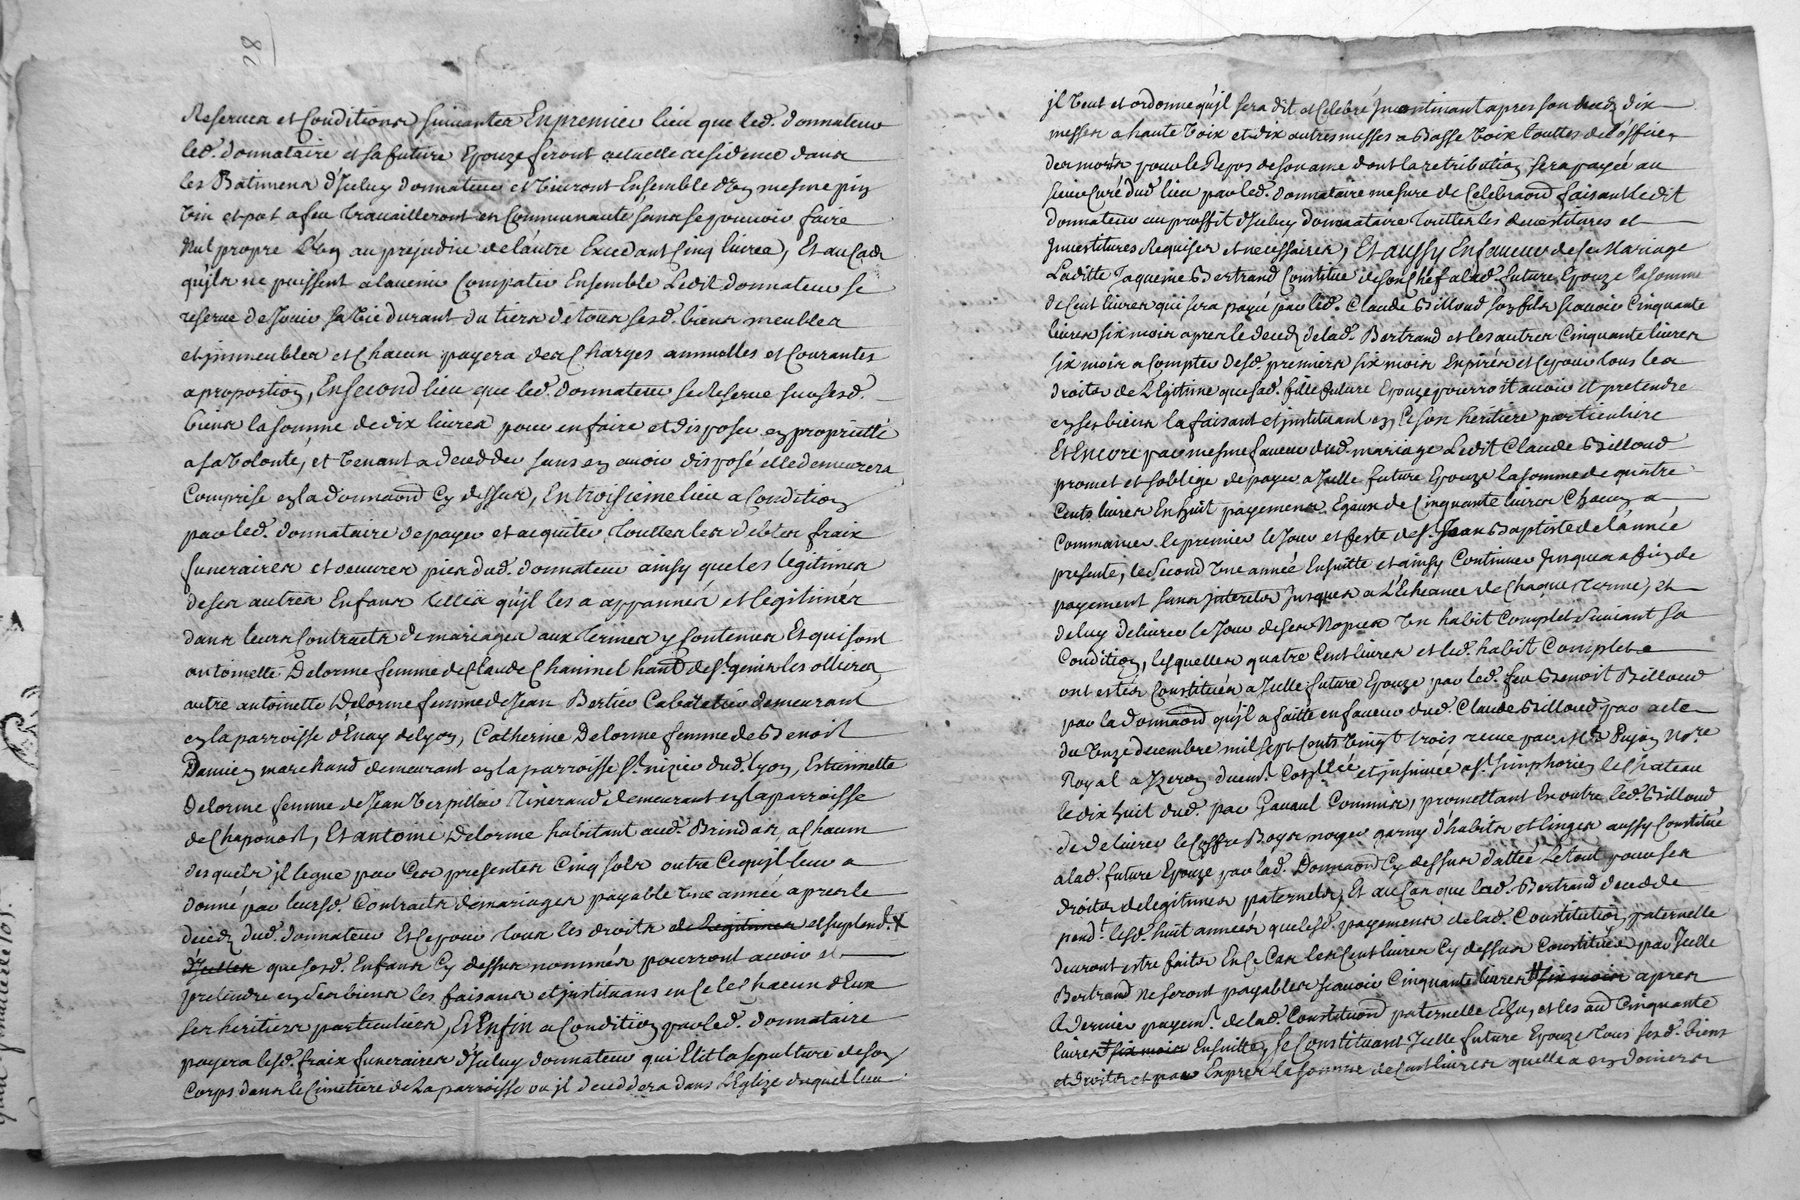 28
Reserves et Conditions suivantes En premier lieu que led. donnateur
led. donnataire et sa future Epouze feront actuelle residence dans
les Batimens d'Iceluy donnateur et vivront Ensemble d'un mesme pin
vin et pot a feu travailleront en Communauté sans se pouvoir faire
Nul propre L'un au prejudice de lautre Excedant Cinq livres, Et au Cas
quils ne puissent alavenir Compatir Ensemble Ledit donnateur se
reserve de Jouir sa vie durant du tiers de tous sesd. biens meubles
et immeubles et Chacun payera des Charges annuelles et Courantes
a proportion, En second lieu que led. donnateur se Reserve sur sesd.
biens la somme de dix livres pour en faire et disposer en proprietté
a sa volonté, et venant a deceder sans en avoir disposé elle demeurera
Comprise en la donnaon Cy dessus, En troisieme lieu a Condition
par led. donnataire de payer et acquiter touttes les debtes fraix
funeraires et oeuvres pies dud. donnateur ainsy que les legitimes
de ses autres Enfans telles qu'il les a appannés et legitimés
dans leurs Contracts de mariages aux termes y Contenus Et qui sont
antoinette Delorme femme de Claude Chaninel hant de St genis les ollieres
autre antoinette Delorme femme de Jean Bertier Cabaretier demeurant
en la parroisse d'Enay de Lyon, Catherine Delorme femme de Benoit
Damien marchand demeurant en la parroisse St nizier dud. Lyon, Estiennette
Delorme femme de Jean Verpillieu Tixerand demeurant en la parroisse
de Chaponost, Et antoine Delorme habitant aud. Brindas a Chacun
desquels il legue par Ces presentes Cinq sols outre Ce qu'il leur a
donné par leursd. Contracts de mariages payable Une année apres le
decedz dud. donnateur Et Ce pour tous les droits de legitimes et suplemt. X
d'Icelles que sesd. Enfans Cy dessus nommés pourront avoir et
pretendre en ses biens les faisans et instituans en Ce les Chacun d'Eux
ses heritiers particuliers, Et Enfin a Condition que led. donnataire
payera lesd. fraix funeraires d'Iceluy donnateur qui Elit la sepulture de son
Corps dans le Cimetiere de La parroisse ou il decedera dans L'Eglize duquel lieu
il veut et ordonne qu'il sera dit et Celebré Incontinant apres son decedz dix
messes a haute voix et dix autres messes a Basse voix touttes de l'office
des morts pour le Repos de son ame dont la retribution sera payée au
sieur Curé dud. lieu par led. donnataire mesure de Celebraon faisant ledit
donnateur au proffit d'Iceluy donnataire touttes les devestitures et
Investitures Requises et necessaires, Et aussy En faveur de ses Mariage
Laditte Jaqueme Bertrand Constitue de son Chef a lad. future Epouze la somme
de Cent livres qui sera payé par led. Claude Billoud son fils scavoir Cinquante
livres six mois apres le decedz de lad. Bertrand et les autres Cinquante livres
six mois a Compter desd. premiers six mois Enpirés et Ce pour tous les
droits de Legitime que sad. fille future Epouze pourroit avoir et pretendre
en ses biens la faisant et instituant en Ce son heritiere particuliere
Et Encore par mesme faveur dud. mariage Ledit Claude Billoud
promet et soblige de payer a Icelle future Epouze la somme de quatre
Cents livres En huit payemens Egaux de Cinquante livres Chacun a
Commancer le premier le Jour et feste de St Jean Baptiste de l'année
presente, le second Une année Ensuitte et ainsy Continuer Jusques a fin de
payement sans Interets Jusques a L'Echeance de Chaque terme, et
deluy delivrer le Jour de ses Nopces Un habit Complet suivant sa
Condition, lesquelles quatre Cent livres et led. habit Complets
ont estés Constitués a Icelle future Epouze par led. feu Benoit Billoud
par la donnaon qu'il a faitte en faveur dud. Claude Billoud par acte
du Unze decembre mil sept Cents vingt trois receu par Me Pujon Nore
Royal a Yzeron duemt. Conllée et insinuée a St Simphorien le Chateau
le dix huit dud. par Gavaul Commis, promettant En outre led. Billoud
de delivrer le Coffre Boys noyer garny d'habits et linges aussy Constitué
a lad. future Epouze par lad. Donnaon Cy dessus dattée Le tout pour ses
droits de legitimes paternels, Et au Cas que lad. Bertrand decede
pendt. lesd. huit années que lesd. payemens de lad. Constitution paternelle
devront estre faits En Ce Cas les Cent livres Cy dessus Constituée par Icelle
Bertrand ne seront payables scavoir Cinquante livres # six mois apres
le dernier payemt. de lad. Constituon paternelle Echu, et les aud Cinquante
livres # six mois Ensuitte, se Constituant Icelle future Epouze tous sesd. biens
et droits et par Exprés la somme de Cent livres quelle a en deniers